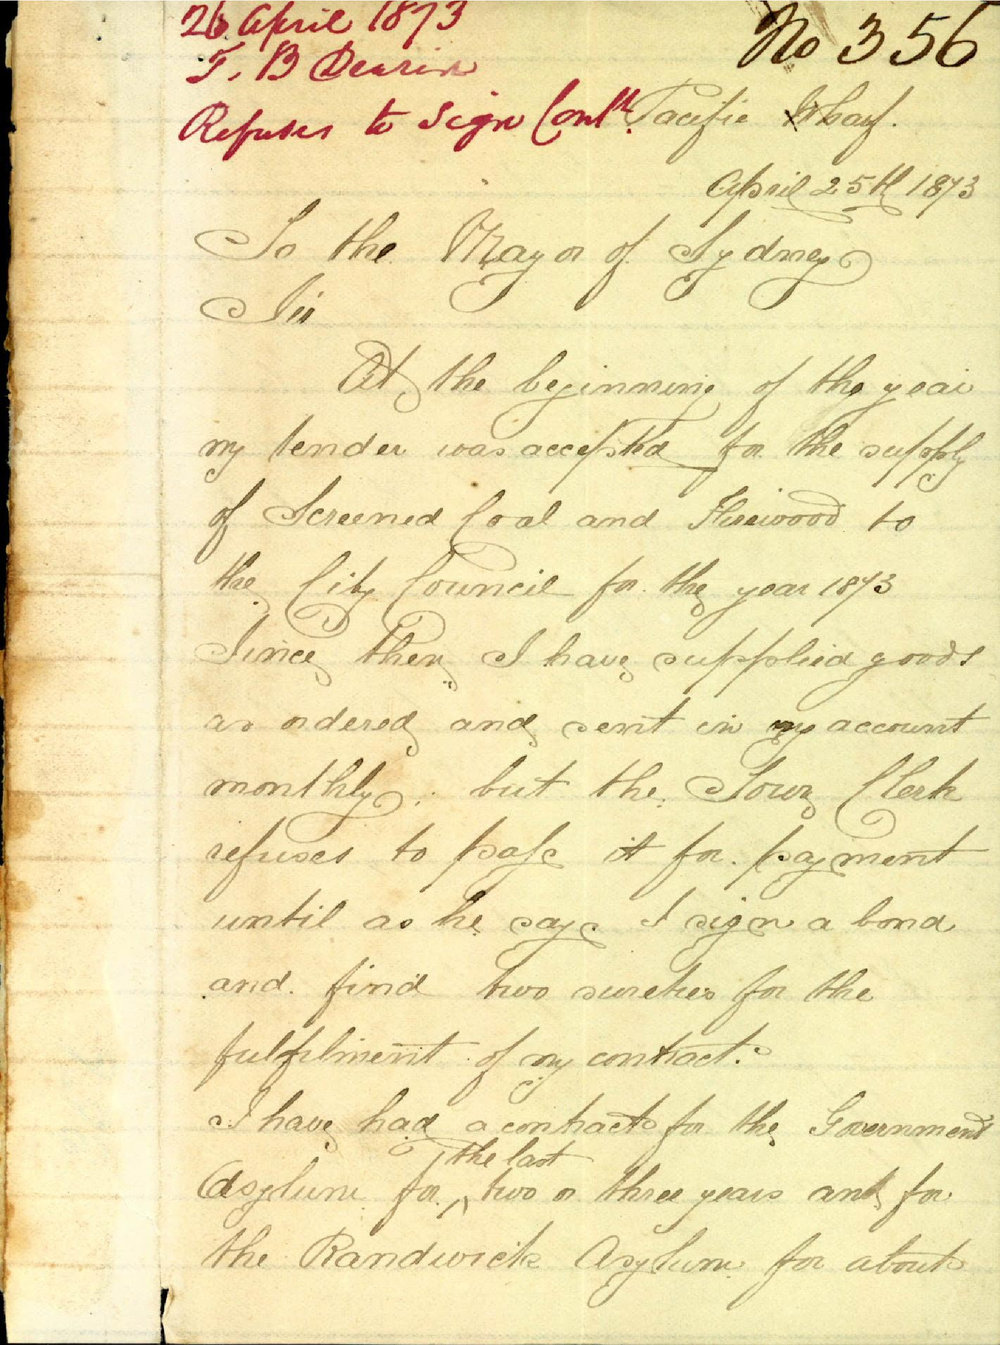 26 April 1873
T. B Dearin
Refuses to Sign Cont[ct].
No 356
Pacific Wharf.
April 25th 1873
To the Mayor of Sydney
Sir
At the beginning of the year
my tender was accepted for the supply
of Screened Coal and Firewood to
the City Council for the year 1873
Since then I have supplied goods
as ordered and sent in my account
monthly. but the Town Clerk
refuses to pass it for payment
until as he says I sign a bond
and find two sureties for the
fulfilment of my contract.
I have had a contract for the Government
Asylum for the last two or three years and for
the Randwick Asylum for about